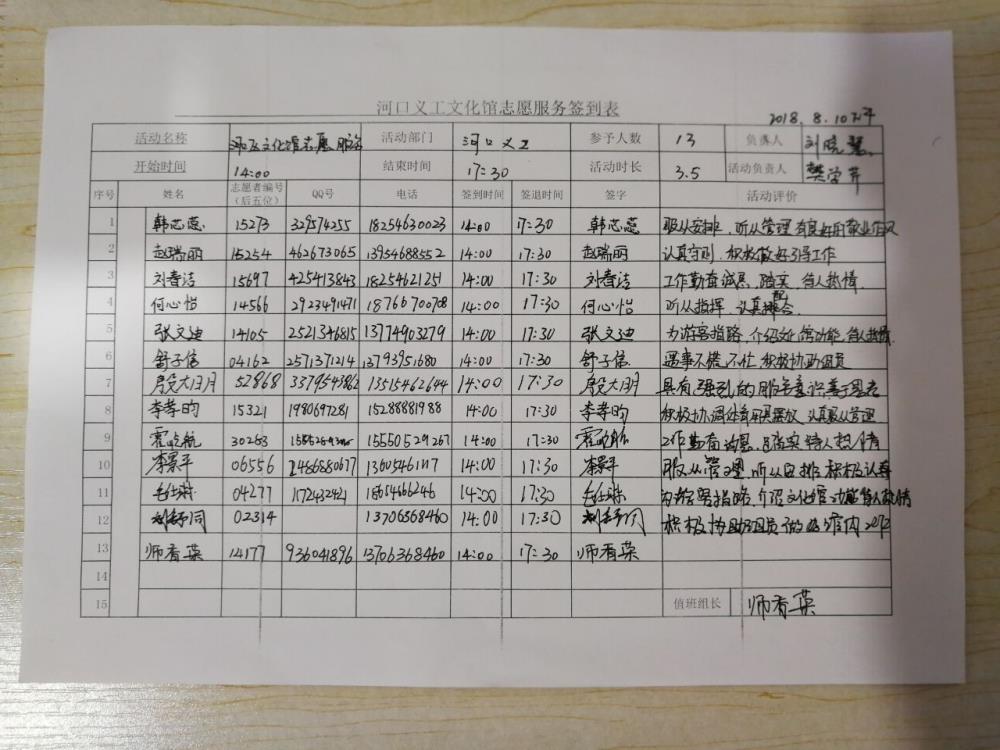 河口义工文化馆志愿服务签到表
2018.8.10下午
活动名称 河口文化馆志愿服务 活动部门 河口义工 参予人数 13 负责人 刘晓慧
开始时间 14:00 结束时间 17:30 活动时长 3.5 活动负责人 樊学芹
序号 姓名 志愿者编号(后五位) QQ号 电话 签到时间 签退时间 签字 活动评价
1 韩志蕊 15273 329574255 18254630023 14:00 17:30 韩志蕊 服从安排,听从管理,有良好的敬业作风
2 赵瑞丽 15254 462673065 13954688552 14:00 17:30 赵瑞丽 认真守则,积极做好引导工作
3 刘春洁 15697 425413843 18254621251 14:00 17:30 刘春洁 工作勤奋诚恳,踏实,待人热情
4 何心怡 14566 2923491471 18766700708 14:00 17:30 何心怡 听从指挥,认真配合
5 张文迪 14105 2521346815 13774903279 14:00 17:30 张文迪 为游客指路,介绍文化馆功能,待人热情
6 舒子倍 04162 2571371214 13793951680 14:00 17:30 舒子倍 遇事不慌不忙,积极协助组员
7 52868 3379543862 13515462644 14:00 17:30 具有强烈的服务意识
8 李孝昀 15321 1980697281 15288881988 14:00 17:30 李孝昀 积极协调 认真服从管理
9 霍皓航 30263 15550529267 14:00 17:30 霍皓航 工作勤奋诚恳,踏实,待人热情
10 李景平 06556 2486880677 14:00 17:30 李景平 服从管理,听从安排,积极认真
11 04277 1572432421 18654666246 14:00 17:30 为游客指路,介绍文化馆功能,待人热情
12 02314 13706368460 14:00 17:30 积极协助组员 馆内
13 师香英 14177 936041896 13706368460 14:00 17:30 师香英
14
15 值班组长 师香英